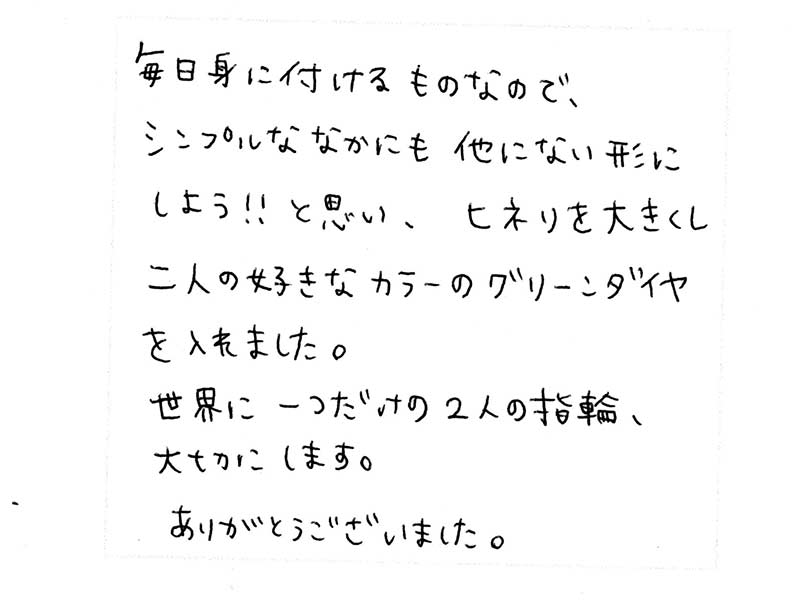 毎日身に付けるものなので、
シンプルななかにも他にない形に
しよう!!と思い、ヒネリを大きくし
二人の好きなカラーのグリーンダイヤ
を入れました。
世界に一つだけの2人の指輪、
大切にします。
ありがとうございました。